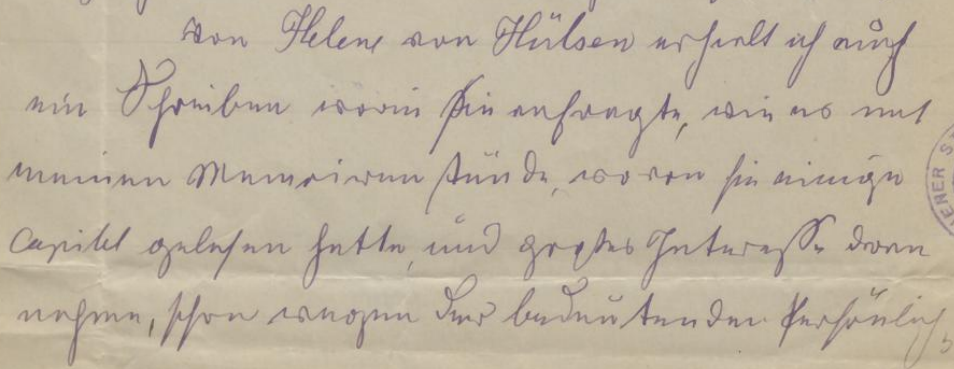 Von Helene von Hülsen erhielt ich auch
ein Schreiben worin sie anfragte, wie es mit
meinen Memoiren stünde, wovon sie einige
Capitel gelesen hatte, und großes Interesse daran
nehme, schon wegen der bedeutenden Persönlich-
ENER S